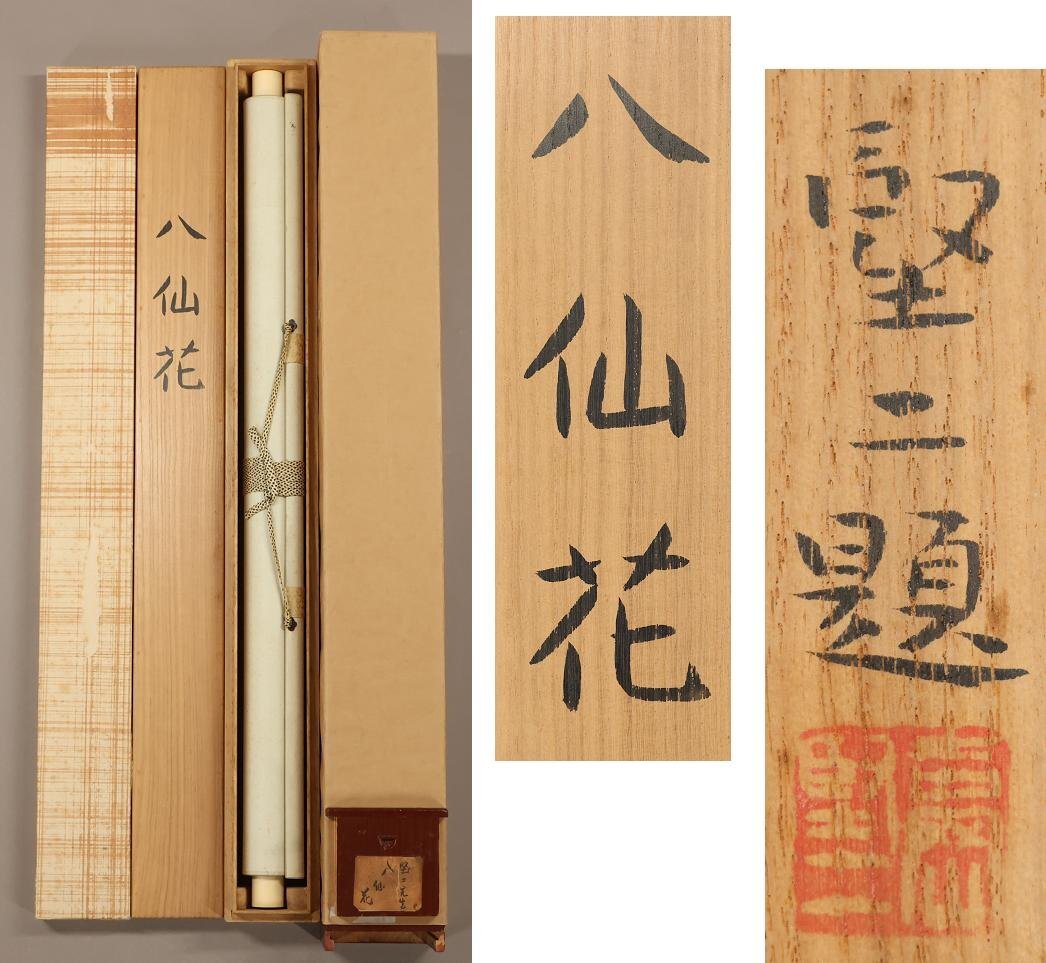 八仙花
堅二先生
八仙花
八仙花
堅二題